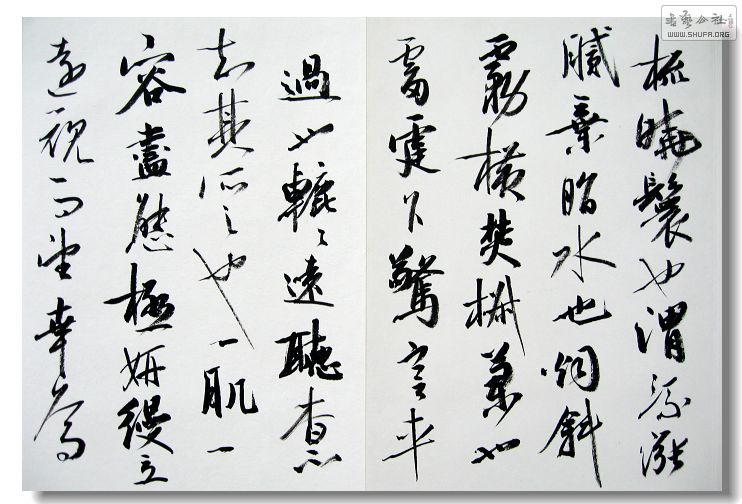 梳曉鬟也渭流漲
膩棄脂水也烟斜
霧橫焚椒蘭也
雷霆乍驚宮車
過也轆〻遠聽杳不
知其所之也一肌一
容盡態極妍縵立
遠視而望幸焉
書藝公社
WWW.SHUFA.ORG